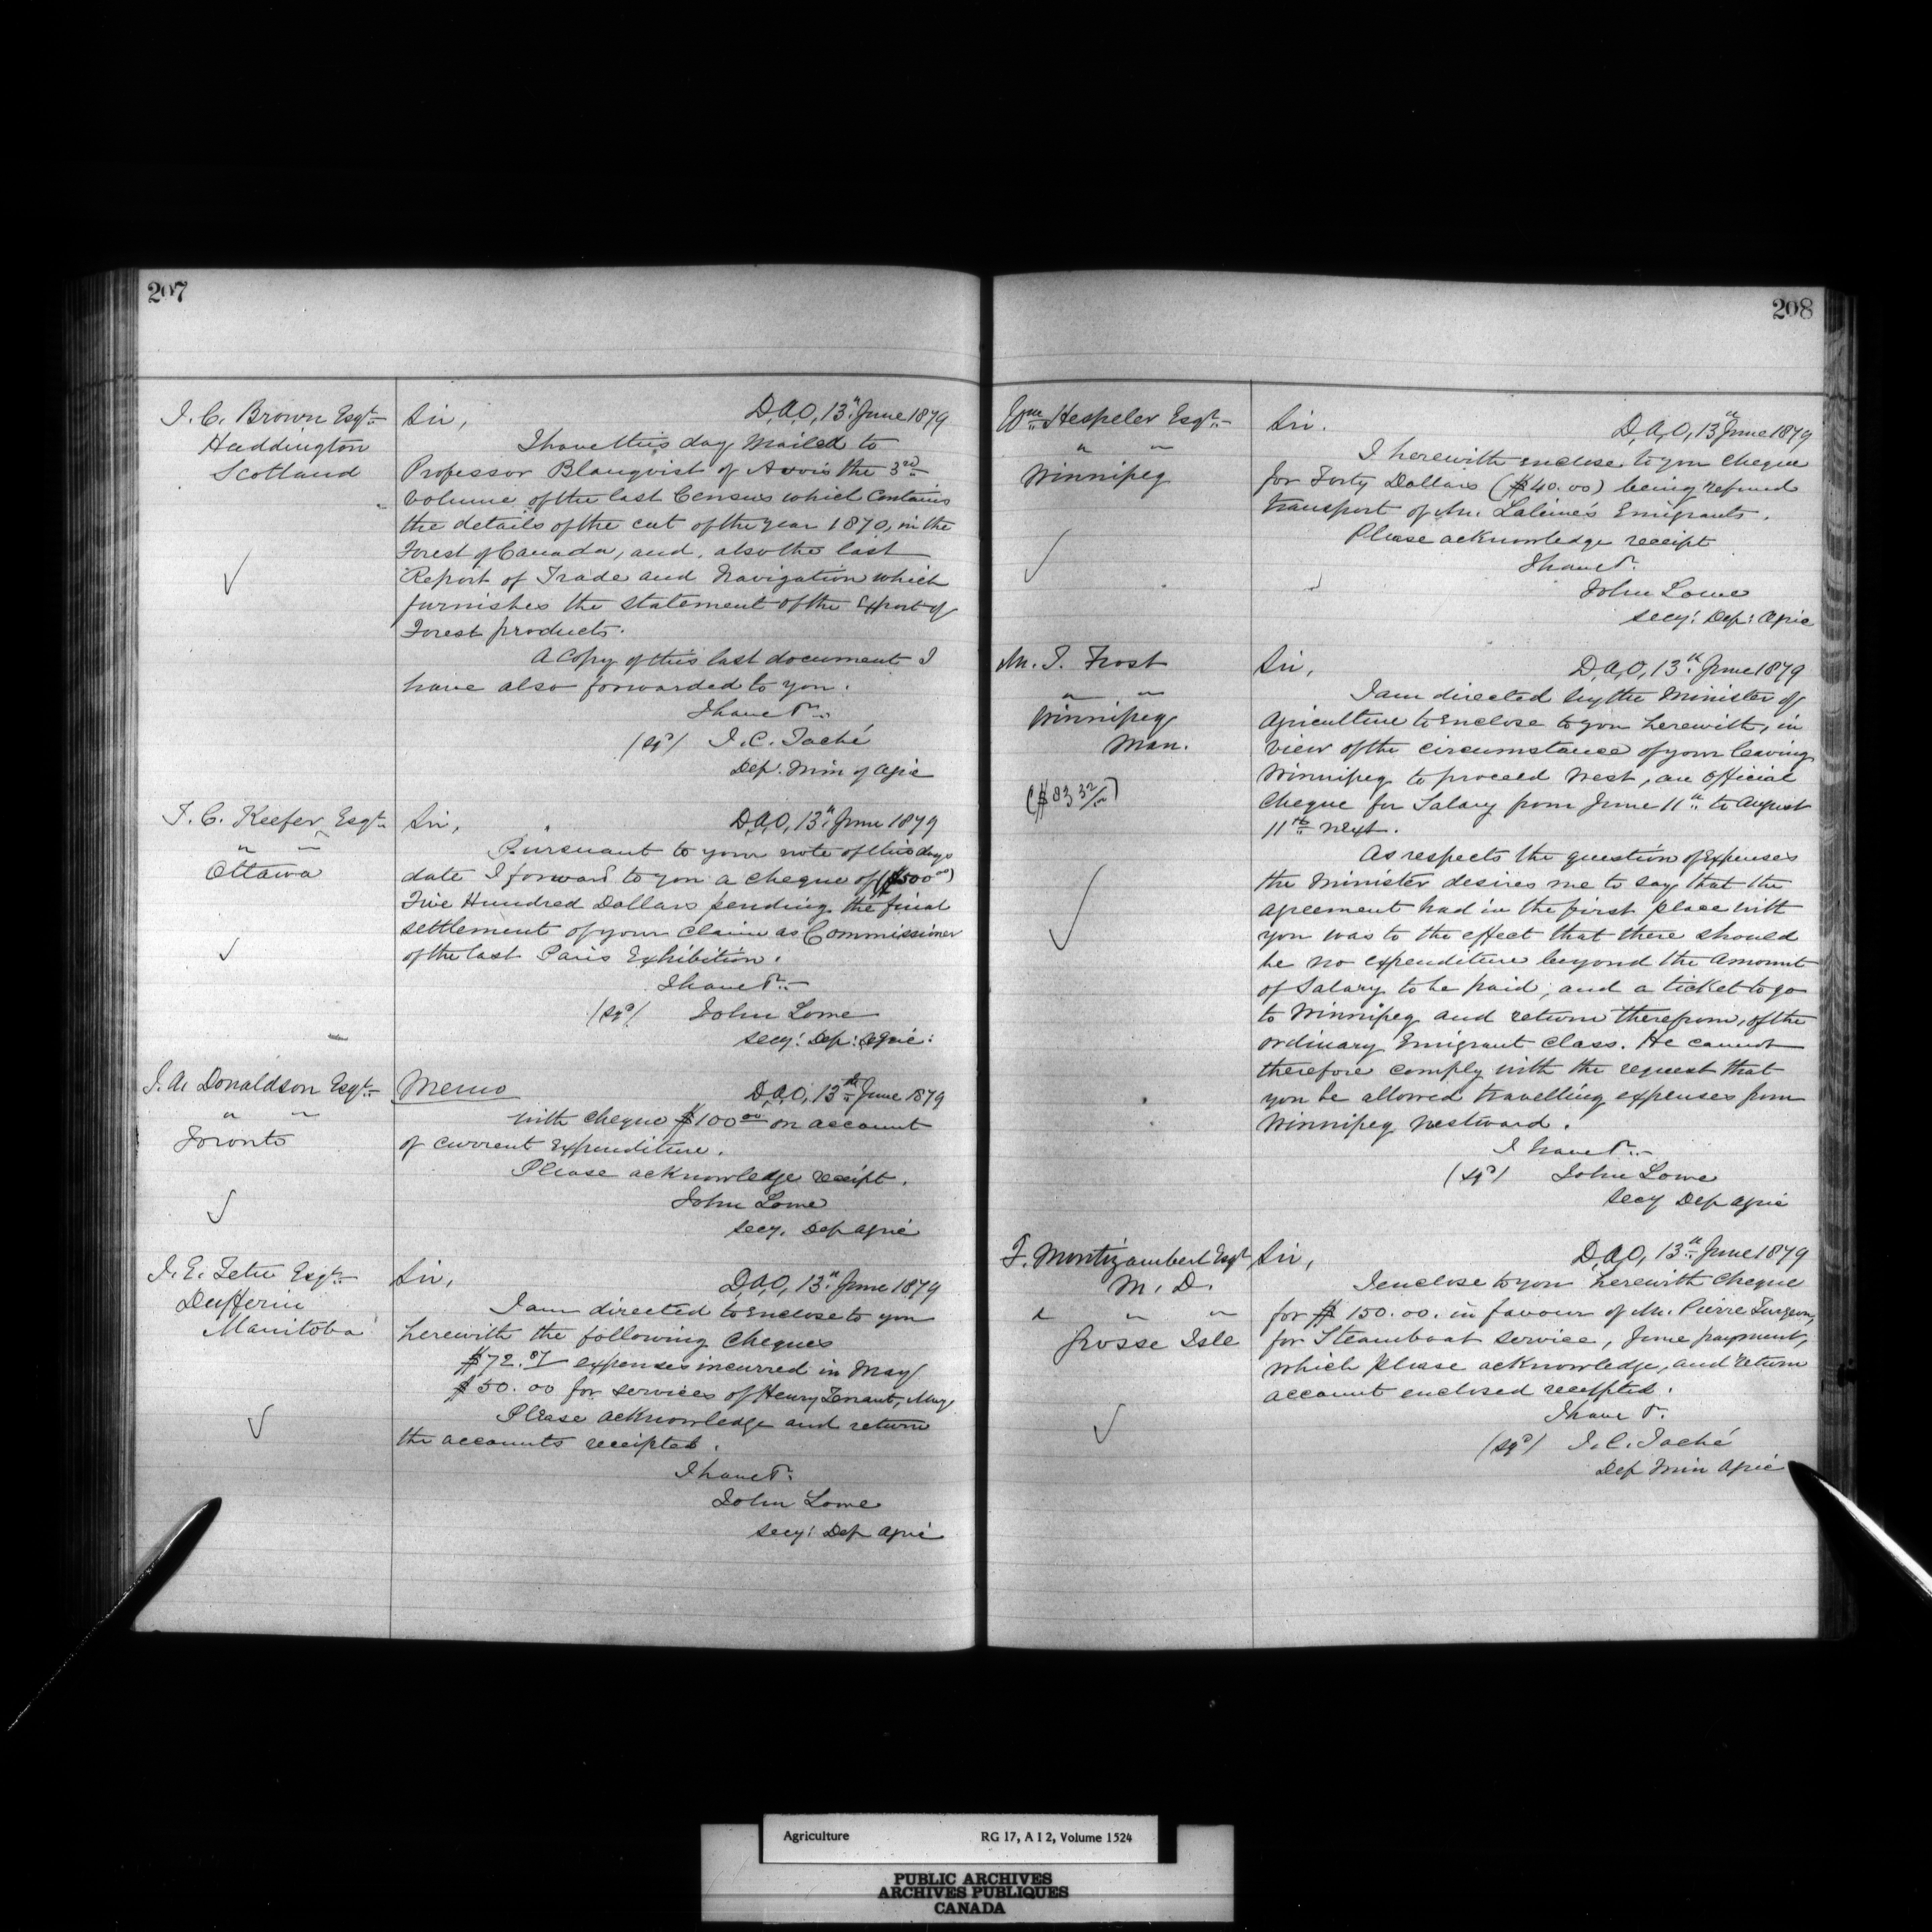 207
J. C. Brown Esqr
Haddington
Scotland
Sir,
D,A,O, 13th June 1879
I have this day Mailed to
Professor Blauqvist of the 3rd
Volume of the last Census which Contains
the details of the cut of the year 1870, in the
Forest of Canada, and, also the last
Report of Trade and Navigation which
furnishes the statement of the Export of
Forest products.
A Copy of this last document I
have also forwarded to you.
I have &c.
(sgd) J. C. Taché
Dep. Min of Agric
T. C. Keefer Esqr
" "
Ottawa
Sir,
D,A,O, 13th June 1879
Pursuant to your note of this days
date I forward to you a cheque of ($500 00)
Five Hundred Dollars pending the final
settlement of your claim as Commissioner
of the last Paris Exhibition.
I have &c.
(sgd) John Lowe
Secy: Dep: Agric:
J. A. Donaldson Esqr
" "
Toronto
Memo
D,A,O, 13th June 1879
With cheque $100 00 on account
of current Expenditure.
Please acknowledge receipt.
John Lowe
Secy. Dep Agric
J. E. Tetu Esqr
Dufferin
Manitoba
Sir,
D,A,O, 13th June 1879
I am directed to Enclose to you
herewith the following Cheques
$72.87 expenses incurred in May
$50.00 for services of Henry Tennant, May
Please acknowledge and return
the accounts receipted.
I have &c.
John Lowe
Secy: Dep Agric
208
Wm Hespeler Esqr
" "
Winnipeg
Sir.
D,A,O, 13th June 1879
I herewith enclose to you cheque
for Forty Dollars ($40.00) being refund
transport of Mr. Lalime's Emigrants.
Please acknowledge receipt
I have &c.
John Lowe
Secy: Dep: Agric
M. J. Frost
" "
Winnipeg
Man.
($83 32/100)
Sir,
D,A,O, 13th June 1879
I am directed by the Minister of
Agriculture to Enclose to you herewith, in
view of the circumstance of your leaving
Winnipeg to proceed West, an Official
Cheque for Salary from June 11th to August
11th next.
As respects the question of Expenses
the Minister desires me to say that the
agreement had in the first place with
you was to the effect that there should
be no expenditure beyond the amount
of Salary to be paid, and a ticket to go
to Winnipeg and return therefrom, of the
ordinary Emigrant Class. He cannot
therefore comply with the request that
you be allowed travelling expenses from
Winnipeg Westward.
I have &c.
(sgd) John Lowe
Secy Dep Agric
F. Montizambert Esqr
M. D.
" " "
Grosse Isle
Sir,
D,A,O, 13th June 1879
I enclose to you herewith cheque
for $150.00. in favour of Mr. Pierre Turgeon,
for Steamboat service, June payment,
which please acknowledge, and return
account enclosed receipted.
I have &c.
(sgd) J. C. Taché
Dep Min Agric
Agriculture RG 17, A I 2, Volume 1524
PUBLIC ARCHIVES
ARCHIVES PUBLIQUES
CANADA